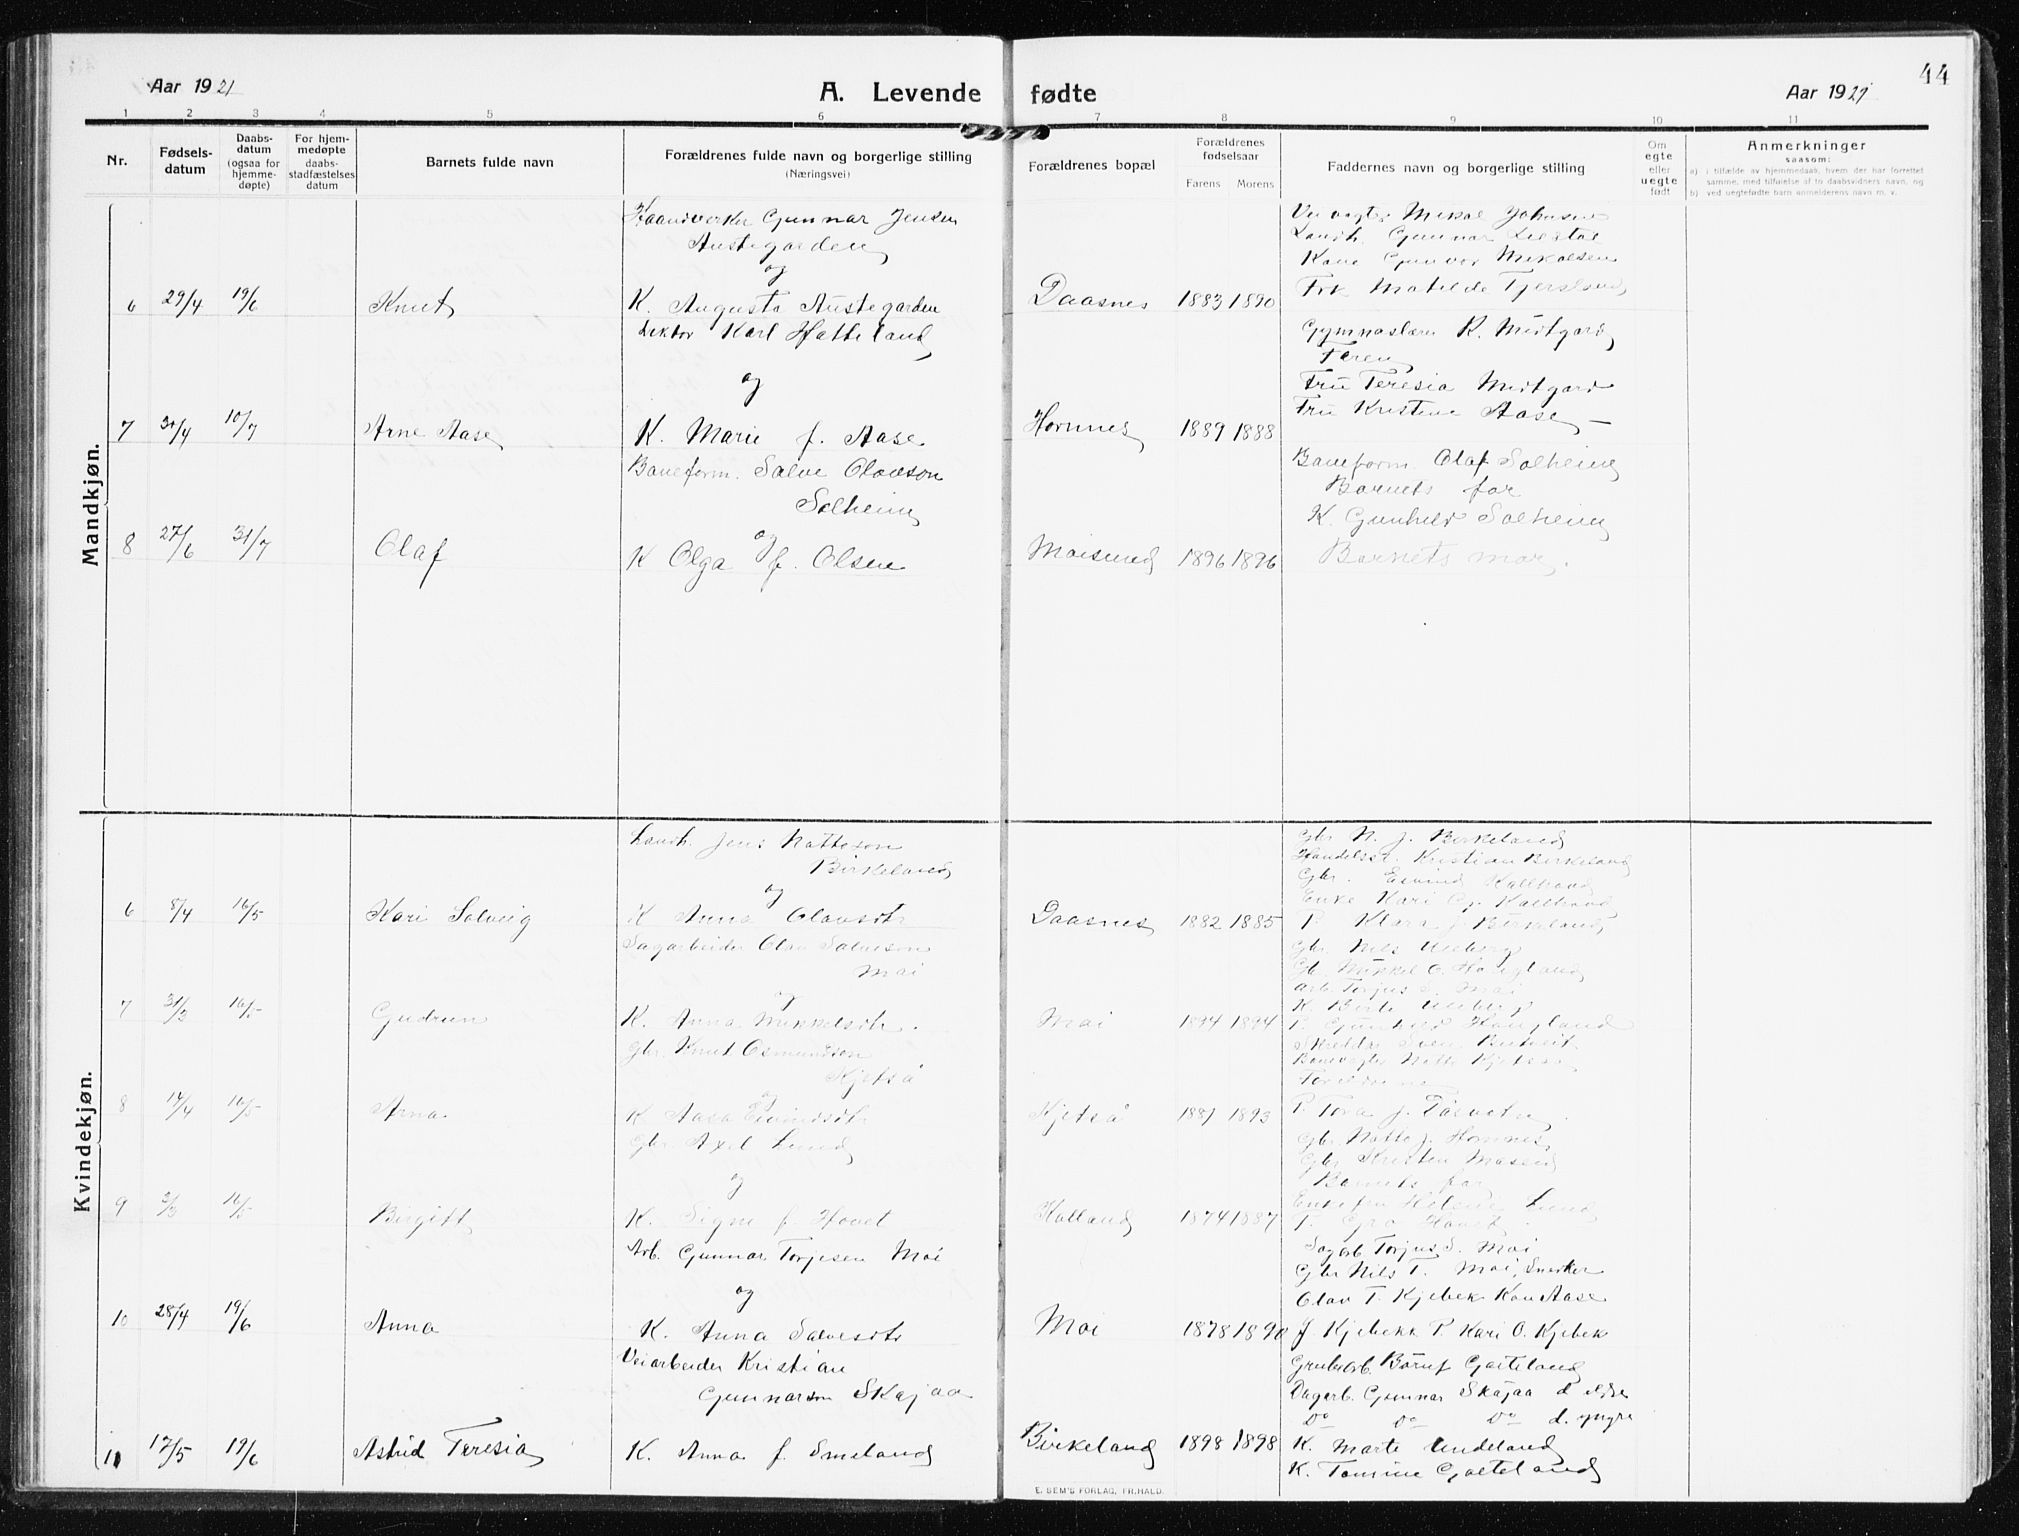 44
Aar 1921
A. Levende fødte
Aar 1921
1 2 3 4 5 6 7 8 9 10 11
Nr.
Fødsels-
datum
Daabs-
datum
(ogsaa for
hjemme-
døpte)
For hjem-
medøpte
daabs-
stadfæstelses
datum
Barnets fulde navn
Forældrenes fulde navn og borgerlige stilling
(Næringsvei)
Forældrenes bopæl
Forældrenes
fødselsaar
Farens Morens
Faddernes navn og borgerlige stilling
Om
egte
eller
uegte
født
Anmerkninger
saasom:
a) i tilfælde av hjemmedaab, hvem der har forrettet
samme, med tilføielse af to daabsvidners navn, og
b) ved uegtefødte barn anmelderens navn m. v.
Mandkjøn.
Haandverker Gunnar Jensen
Austegarden
og
6 29/4 19/6 Knut K. Augusta Austegarden Daasnes 1883 1890
Veivogter Mikal Johnsen
Landh. Gunnar Lilstøl
Kone Gunvor Mikalsen
Frk Matilde
Lektor Karl Hatteland
og
7 10/7 Arne Aase K. Marie f. Aase Hornnes 1889 1888
Gymnaslærer K. Midtgard
Fru Teresia Midtgard
Fru Kristine Aase
Baneform. Salve Olavson
Solheim
og
8 27/6 31/7 Olaf K Olga f. Olsen Moisund 1896 1896
Baneform. Olaf Solheim
Barnets far
K. Gunhild Solheim
Barnets mor.
Kvindekjøn.
Landh. Jens Natteson
Birkeland
og
6 8/4 16/5 Kari Solveig K Anna Olavsdtr Daasnes 1882 1885
Gbr N. J. Birkeland
Handelsb. Kristian Birkeland
Gbr. Eivind Kallhovd
Enke Kari G. Kallhovd
P. Klara J. Birkeland
Sagarbeider Olav Salveson
Moi
og
7 31/3 16/5 Gudrun K. Anna Mikkelsdtr. Moi 1894 1894
Gbr Nils Uleberg
Gb. Mikkel O. Haugland
Arb. Torjus S. Moi
K. Birte Uleberg
P. Gunhild Haugland
Gbr. Knut Osmundson
Kjetså
og
8 14/4 16/5 Arna K Aasa Eivindsdtr Kjetså 1881 1893
Skredder Sven
Banevogter Natte Kjetså
Foreldrene
P. Tora J.
Gbr. Axel Lund
og
9 16/5 Birgitt K. Signe f. Hovet Kalland 1874 1887
Gbr. Natte J. Hornnes
Gbr Kristen Moseid
Barnets far
Enkefru Helene Lund
T. Gro Hovet
Arb. Gunnar Torjesen Moi
og
10 28/4 19/6 Anna K. Anna Salvesdtr Moi 1878 1890
Sagarb Torjus S. Moi
Gbr Nils T. Moi, Snekker
Olav T. Kjebek Kon Aase
J Kjebekk P. Kari O. Kjebek
Veiarbeider Kristian
Gunnarson Skajaa
11 17/5 19/6 Astrid Teresia K. Anna f. Smeland Birkeland 1898 1898
Grubearb. Børuf Gaiteland
Dagarb. Gunnar Skajaa d. eldre
Do Do Do d. yngre
K. Marte Undeland
K. Tomine Gaiteland
E. SEM'S FORLAG, FR.HALD.